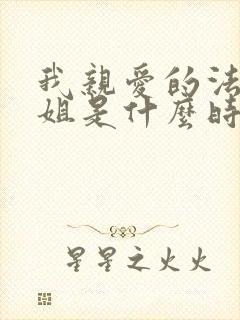 我親愛的法
姐是什麼時
星星之火火